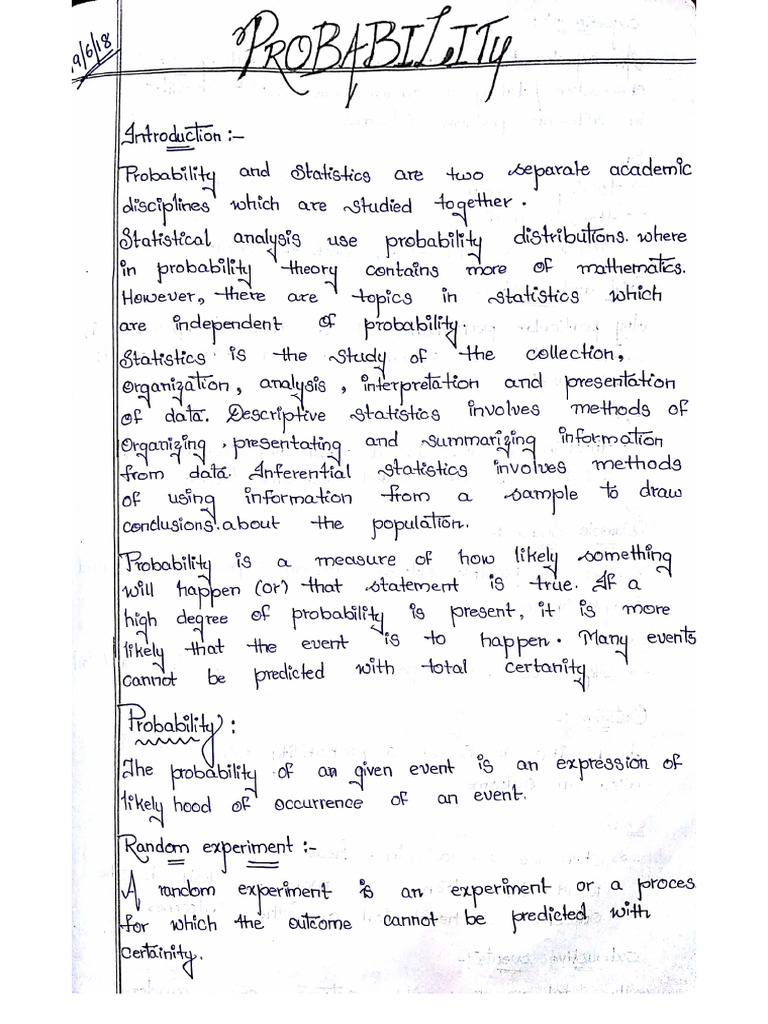 19/6/18
PROBABILITY
Introduction :-
Probability and Statistics are two separate academic
disciplines which are studied together.
Statistical analysis use probability distributions. where
in probability theory contains more of mathematics.
However, there are topics in statistics which
are independent of probability.
Statistics is the study of the collection,
organization, analysis, interpretation and presentation
of data. Descriptive statistics involves methods of
organizing, presentating and summarizing information
from data. Inferential statistics involves methods
of using information from a sample to draw
conclusions. about the population.
Probability is a measure of how likely something
will happen (or) that statement is true. If a
high degree of probability is present, it is more
likely that the event is to happen. Many events
cannot be predicted with total certanity
Probability :
The probability of an given event is an expression of
likely hood of occurrence of an event.
Random experiment :-
A random experiment is an experiment or a proces
for which the outcome cannot be predicted with
certainity.